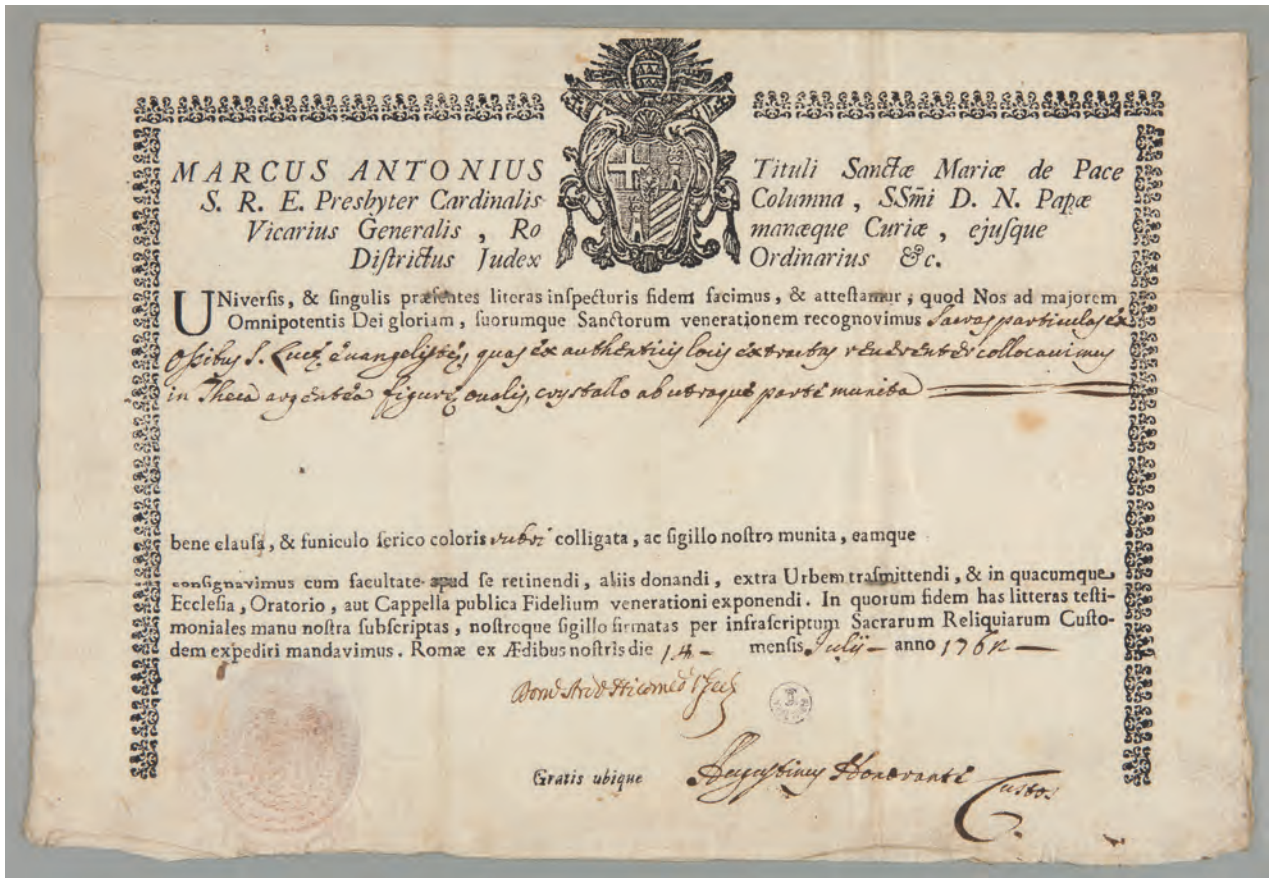 MARCUS ANTONIUS Tituli Sanctæ Mariæ de Pace
S. R. E. Presbyter Cardinalis Columna, SSm̄i D. N. Papæ
Vicarius Generalis, Romanæque Curiæ, ejuſque
Diſtrictus Judex Ordinarius &c.
UNiverſis, & ſingulis præſentes literas inſpecturis fidem facimus, & atteſtamur, quod Nos ad majorem
Omnipotentis Dei gloriam, ſuorumque Sanctorum venerationem recognovimus Sacras particulas ex
Ossibus S. Lucę Evangelistę, quas ex authenticis locis extractas reverenter collocavimus
in Theca argentea figurę ovalis, crystallo ab utraque parte munita
bene clauſa, & funiculo ſerico coloris rubri colligata, ac ſigillo noſtro munita, eamque
conſignavimus cum facultate apud ſe retinendi, aliis donandi, extra Urbem traſmittendi, & in quacumque
Eccleſia, Oratorio, aut Cappella publica Fidelium venerationi exponendi. In quorum fidem has litteras teſti-
moniales manu noſtra ſubſcriptas, noſtroque ſigillo firmatas per infraſcriptum Sacrarum Reliquiarum Cuſto-
dem expediri mandavimus. Romæ ex Ædibus noſtris die 14 menſis Julij anno
Gratis ubique Augustinus Honoranti Custos